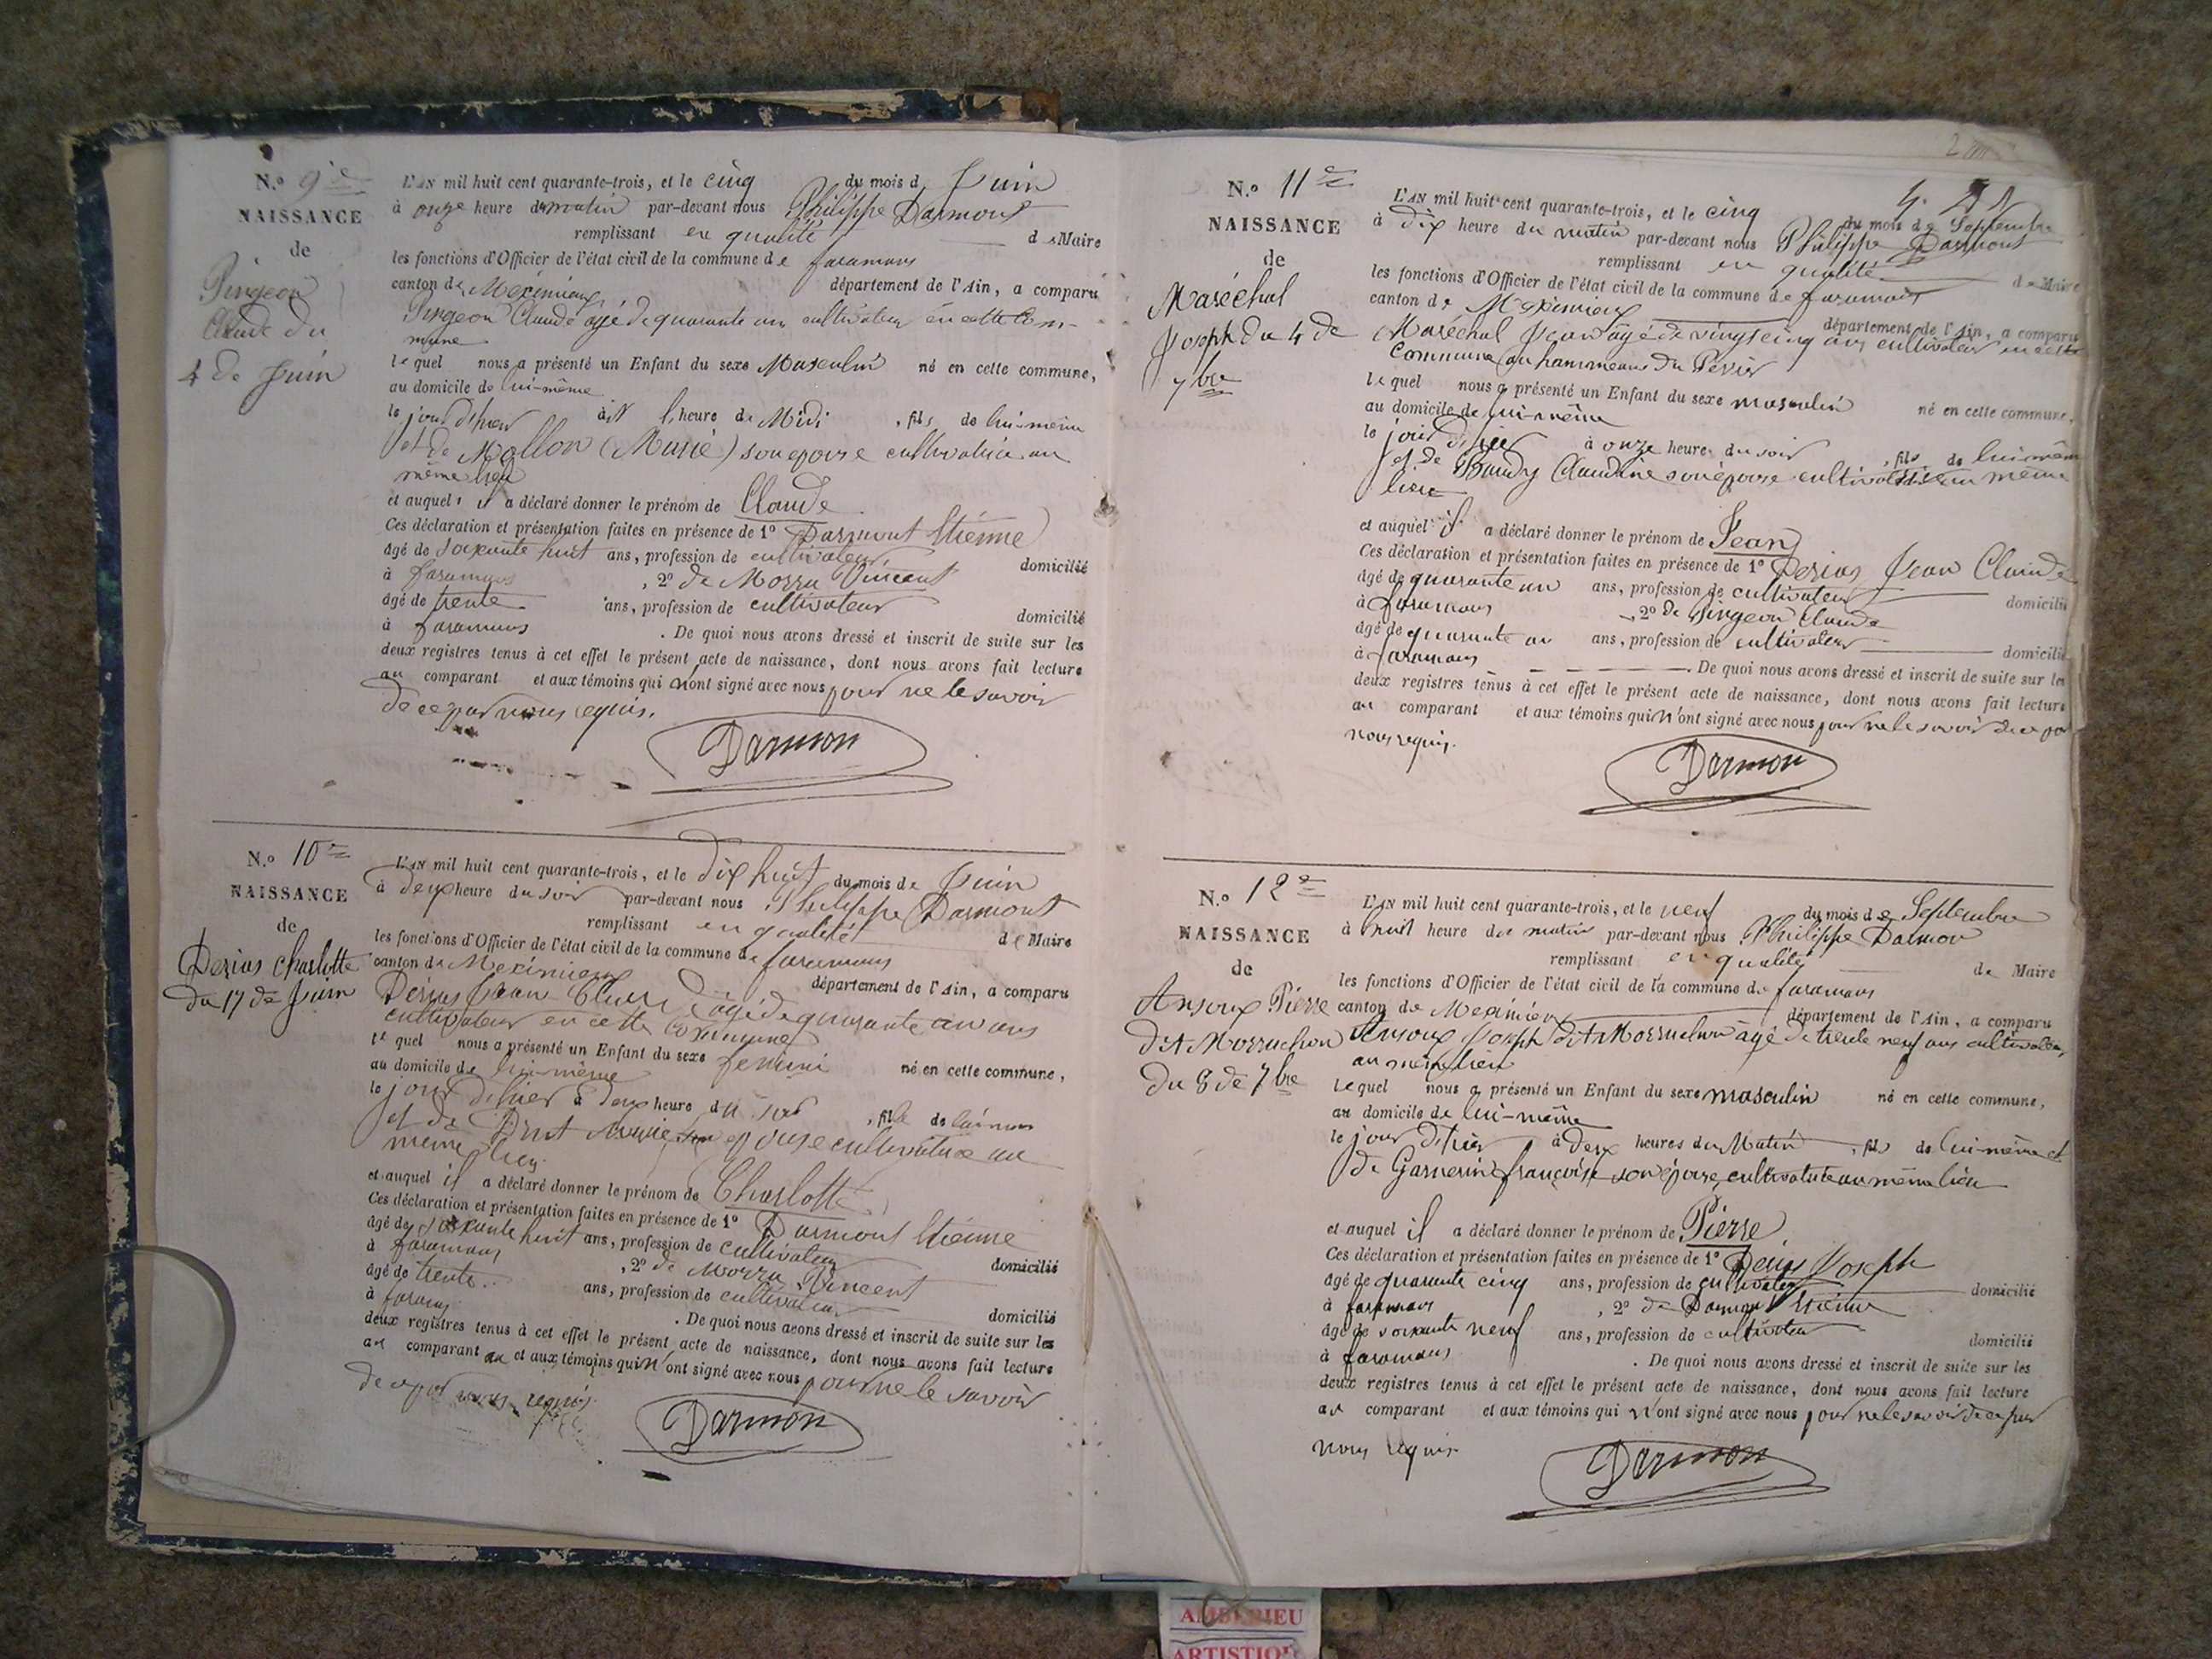 N.o 9e
NAISSANCE
de
Pingeon
Claude du
4 de Juin
L'AN mil huit cent quarante-trois, et le cinq du mois d Juin
à onze heure du matin par-devant nous Philippe Darmont
remplissant en qualité de Maire
les fonctions d'Officier de l'état civil de la commune de faramans
canton de Meximieux département de l'Ain, a comparu
Pingeon Claude agé de quarante ans cultivateur en cette Com-
mune
lequel nous a présenté un Enfant du sexe Masculin né en cette commune,
au domicile de lui-même
le jour d'hier à l'heure de Midi, fils de lui-même
et de Mollon (Marie) son epouse cultivatrice au
même lieu
et auquel il a déclaré donner le prénom de Claude
Ces déclaration et présentation faites en présence de 1o Darmont Etienne
âgé de soixante huit ans, profession de cultivateur domicilié
à faramans, 2o de Morra Vincent
âgé de trente ans, profession de cultivateur domicilié
à faramans. De quoi nous avons dressé et inscrit de suite sur les
deux registres tenus à cet effet le présent acte de naissance, dont nous avons fait lecture
au comparant et aux témoins qui n'ont signé avec nous pour ne le savoir
de ce par nous requis.
Darmon
N.o 10e
NAISSANCE
de
Perias Charlotte
du 17 de Juin
L'AN mil huit cent quarante-trois, et le dix huit du mois de Juin
à deux heure du soir par-devant nous Philippe Darmont
remplissant en qualité de Maire
les fonctions d'Officier de l'état civil de la commune de faramans
canton de Meximieux département de l'Ain, a comparu
Perias Jean Claude âgé de quarante un ans
cultivateur en cette Commune
lequel nous a présenté un Enfant du sexe femini né en cette commune,
au domicile de lui-même
le jour d'hier à deux heure du soir, fille de lui même
et de son epouse cultivatrice au
même lieu.
et auquel il a déclaré donner le prénom de Charlotte
Ces déclaration et présentation faites en présence de 1o Darmont Etienne
âgé de soixante huit ans, profession de cultivateur domicilié
à faramans, 2o de Morra Vincent
âgé de trente ans, profession de cultivateur domicilié
à . De quoi nous avons dressé et inscrit de suite sur les
deux registres tenus à cet effet le présent acte de naissance, dont nous avons fait lecture
au comparant et aux témoins qui n'ont signé avec nous pour ne le savoir
de ce par nous requis.
Darmon
N.o 11e
NAISSANCE
de
Maréchal
Joseph du 4 de
7bre
L'AN mil huit cent quarante-trois, et le cinq du mois de Septembre
à dix heure du matin par-devant nous Philippe Darmont
remplissant en qualité de Maire
les fonctions d'Officier de l'état civil de la commune de faramans
canton de Meximieux département de l'Ain, a comparu
Maréchal Jean âgé de vingt cinq ans cultivateur en cette
Commune au hammeau du
lequel nous a présenté un Enfant du sexe masculin né en cette commune,
au domicile de lui-même
le jour d'hier à onze heure du soir, fils de lui-même
et de Baudy Claudine son épouse cultivatrice au même
lieu
et auquel il a déclaré donner le prénom de Jean
Ces déclaration et présentation faites en présence de 1o Perias Jean Claude
âgé de quarante un ans, profession de cultivateur domicilié
à faramans, 2o de Pingeon Claude
âgé de quarante an ans, profession de cultivateur domicilié
à faramans. De quoi nous avons dressé et inscrit de suite sur les
deux registres tenus à cet effet le présent acte de naissance, dont nous avons fait lecture
au comparant et aux témoins qui n'ont signé avec nous pour ne le savoir de ce par
nous requis.
Darmon
N.o 12e
NAISSANCE
de
Ansoux Pierre
dit Morruchon
du 8 de 7bre
L'AN mil huit cent quarante-trois, et le neuf du mois de Septembre
à huit heure du matin par-devant nous Philippe Darmon
remplissant en qualité de Maire
les fonctions d'Officier de l'état civil de la commune de faramans
canton de Meximieux département de l'Ain, a comparu
Ansoux Joseph dit Morruchon âgé de trente neuf ans cultivateur
au même lieu
Lequel nous a présenté un Enfant du sexe masculin né en cette commune,
au domicile de lui-même
le jour d'hier à deux heures du Matin, fils de lui-même et
de Garnerin françoise son épouse, cultivatrice au même lieu
et auquel il a déclaré donner le prénom de Pierre
Ces déclaration et présentation faites en présence de 1o Joseph
âgé de quarante cinq ans, profession de cultivateur domicilié
à faramans, 2o de Darmon Etienne
âgé de soixante neuf ans, profession de cultivateur domicilié
à faramans. De quoi nous avons dressé et inscrit de suite sur les
deux registres tenus à cet effet le présent acte de naissance, dont nous avons fait lecture
au comparant et aux témoins qui n'ont signé avec nous pour ne le savoir de ce par
nous requis.
Darmon
AMBERIEU
ARTISTIQ